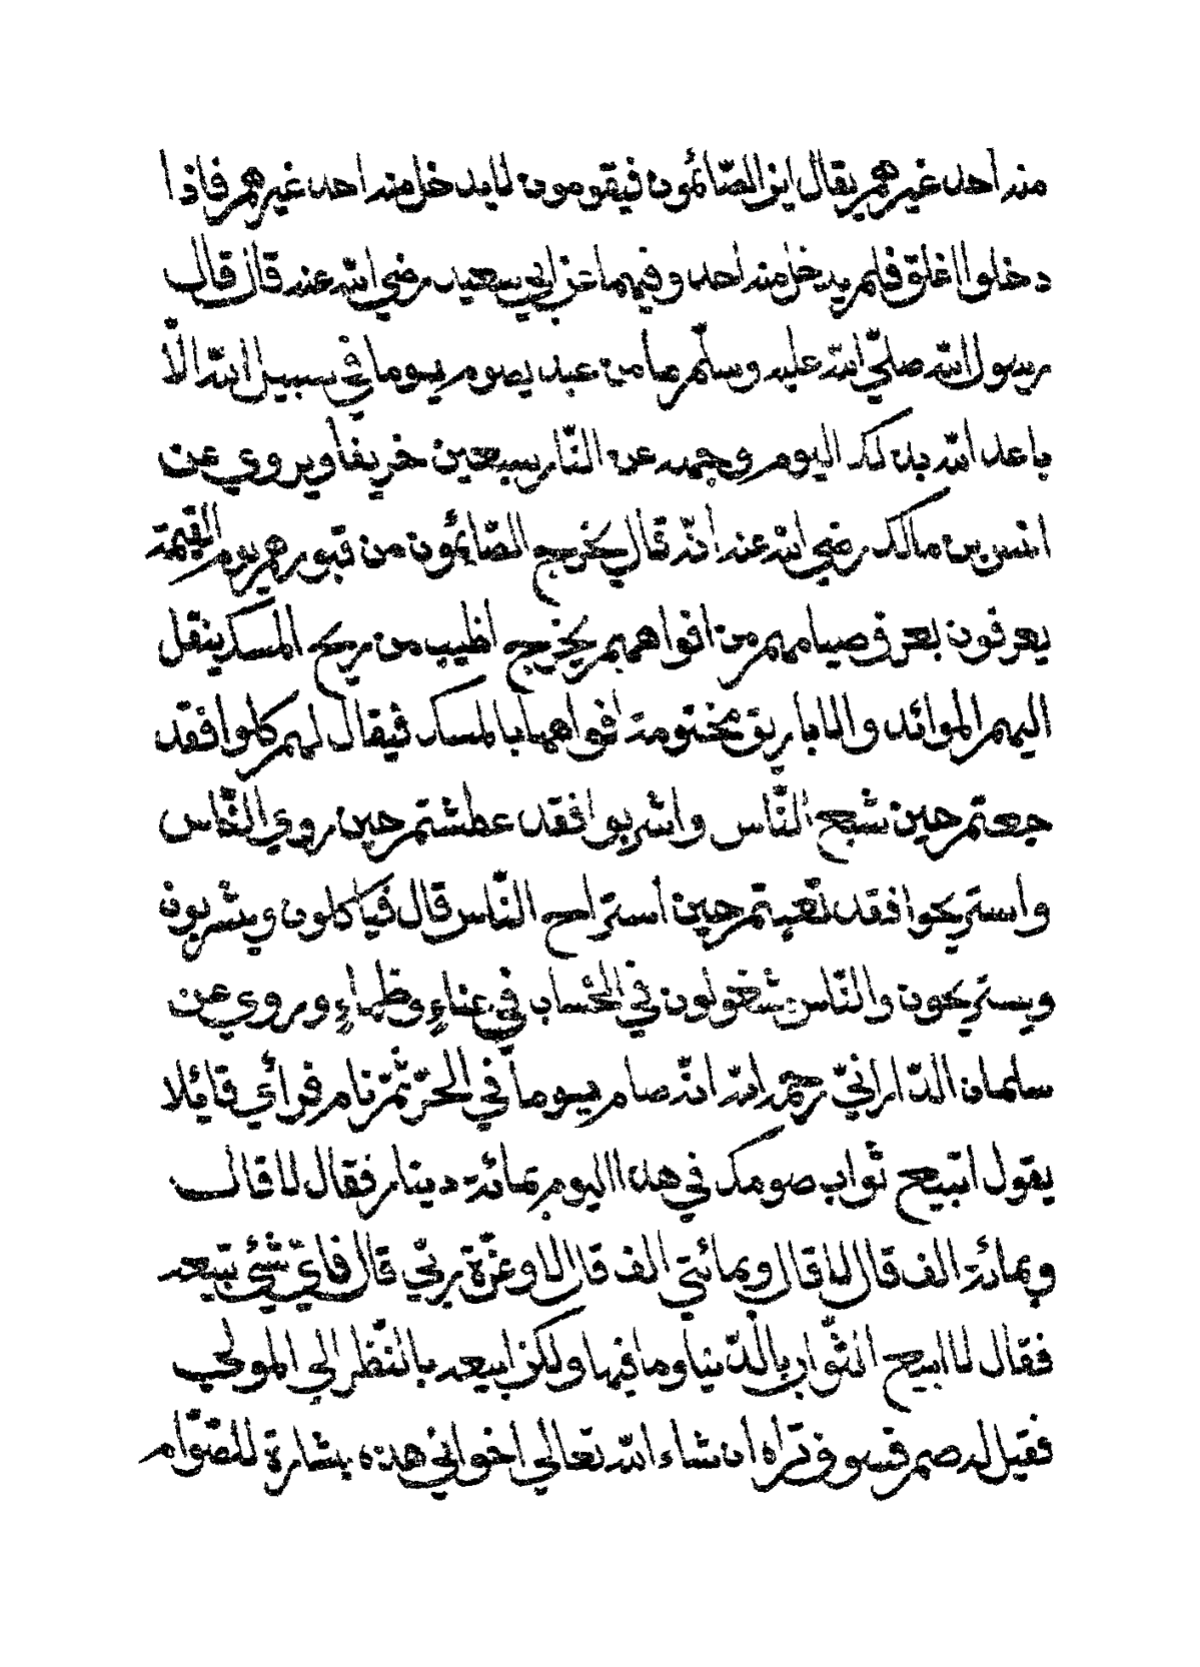 منه احد غيرهم يقال اين الصّائمون فيقومون لا يدخل منه احد غيرهم فاذا
دخلوا اغلق فلم يدخل منه احد وفيهما عن ابي سعيد رضي الله عنه قال قال
رسول الله صلّي الله عليه وسلّم ما من عبد يصوم يوما في سبيل الله الّا
باعد الله بذلك اليوم وجهه عن النّار سبعين خريفا ويروي عن
انس بن مالك رضي الله عنه انّه قال يخرج الصّائمون من قبورهم يوم القيمة
يعرفون بعرف صيامهم من افواههم يخرج اطيب من ريح المسك ينقل
اليهم الموائد والاباريق مختومة افواهها بالمسك فيقال لهم كلوا فقد
جعتم حين شبع النّاس واشربوا فقد عطشتم حين روي النّاس
واستريحوا فقد تعبتم حين استراح النّاس قال فيأكلون ويشربون
ويستريحون والنّاس مشغولون في الحساب في عناءٍ وظماءٍ وروي عن
سليمان الدّارانيّ رحمه الله انّه صام يوماً في الحرّ ثمّ نام فرأي قائلا
يقول اتبيع ثواب صومك في هذا اليوم بمائة دينار فقال لا قال
وبمائة الف قال لا قال وبمائتي الف قال لا وعزّة ربّي قال فايّ شئي تبيعه
فقال لا ابيع الثّواب بالدّنيا وما فيها ولكن ابيعه بالنّظر الي المولي
فقيل له صم فسوف تراه ان شاء الله تعالي اخواني هذه بشارة للصّوّام